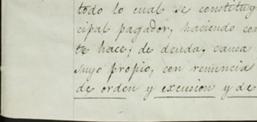 todo lo cual se constituy
cipal pagador, haciendo con
te hace, de deuda, causa
suyo propio, con renuncia
de orden y excusion y de